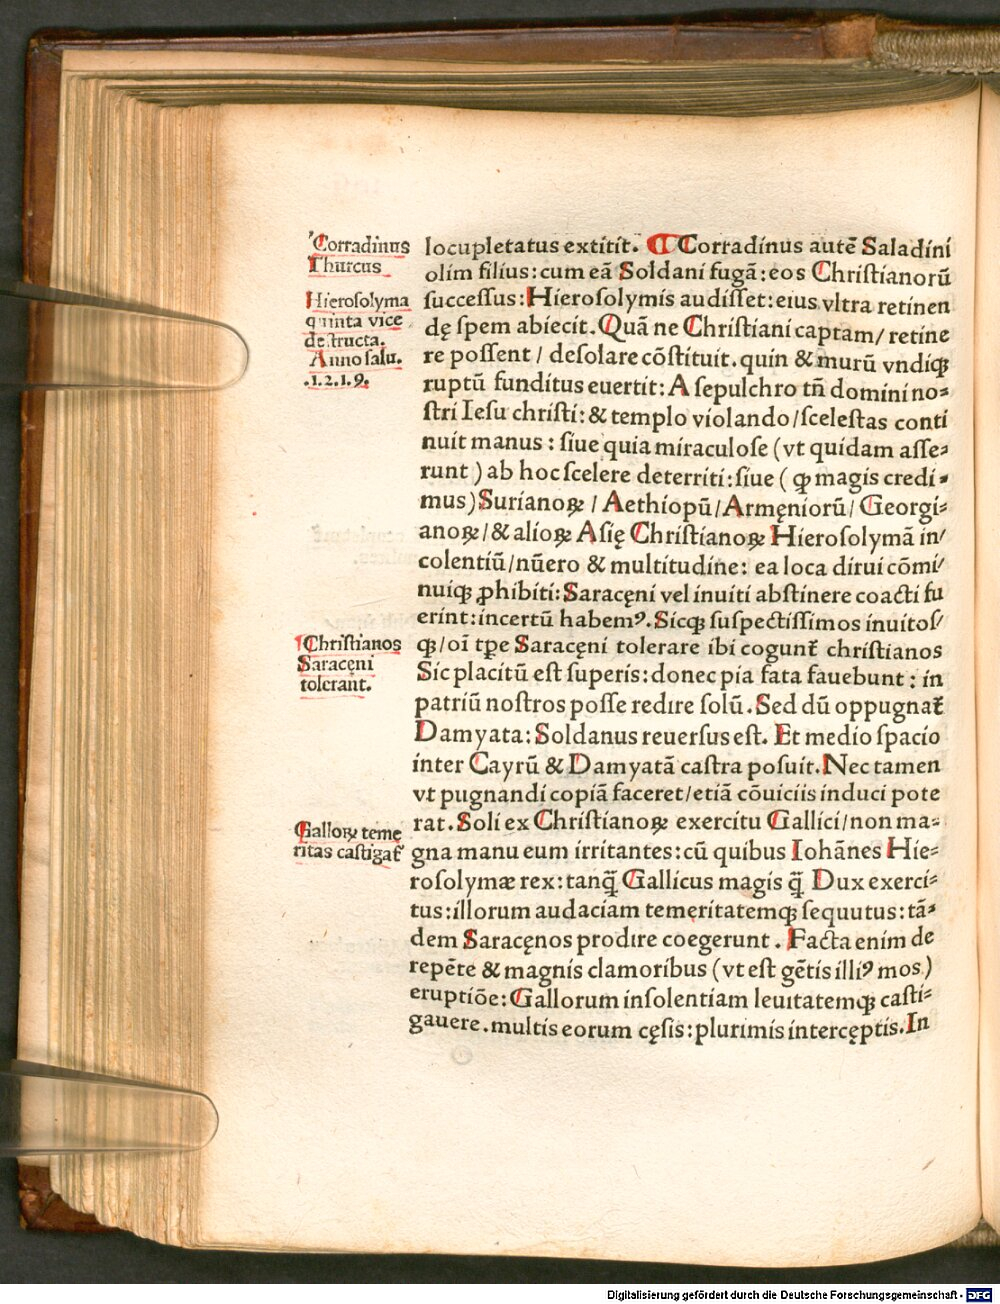 Corradinus
Thurcus
Hierosolyma
quinta vice
destructa.
Anno salu.
.1.2.1.9.
Christianos
Saracęni
tolerant.
Galloꝝ teme
ritas castigat᷑
locupletatus extitit. ¶ Corradinus autē Saladini
olim filius: cum eā Soldani fugā: eos Christianorū
successus: Hierosolymis audisset: eius vltra retinen
dę spem abiecit. Quā ne Christiani captam/ retine
re possent / desolare cōstituit. quin & murū vndiqꝫ
ruptū funditus euertit: A sepulchro tñ domini no⸗
stri Iesu christi: & templo violando/scelestas conti
nuit manus : siue quia miraculose (vt quidam asse⸗
runt ) ab hoc scelere deterriti: siue ( ꝙ magis credi⸗
mus) Surianoꝝ / Aethiopū/ Armęniorū/ Georgi⸗
anoꝝ/ & alioꝝ Asię Christianoꝝ Hierosolymā in/
colentiū/nūero & multitudine: ea loca dirui cōmi/
nuiqꝫ ꝓhibiti: Saracęni vel inuiti abstinere coacti fu
erint: incertū habemꝰ. Sicqꝫ suspectissimos inuitos/
qꝫ/ oī tꝑe Saracęni tolerare ibi cogunt᷑ christianos
Sic placitū est superis: donec pia fata fauebunt : in
patriū nostros posse redire solū. Sed dū oppugnat᷑
Damyata: Soldanus reuersus est. Et medio spacio
inter Cayrū & Damyatā castra posuit. Nec tamen
vt pugnandi copiā faceret/etiā cōuiciis induci pote
rat. Soli ex Christianoꝝ exercitu Gallici/non ma⸗
gna manu eum irritantes: cū quibus Iohānes Hie⸗
rosolymæ rex: tanq̄ Gallicus magis q̄ Dux exerci⸗
tus: illorum audaciam temęritatemqꝫ sequutus: tā⸗
dem Saracęnos prodire coegerunt . Facta enim de
repēte & magnis clamoribus (vt est gētis illiꝰ mos)
eruptiōe: Gallorum insolentiam leuitatemqꝫ casti⸗
gauere. multis eorum cęsis: plurimis intercęptis. In
Digitalisierung gefördert durch die Deutsche Forschungsgemeinschaft - DFG